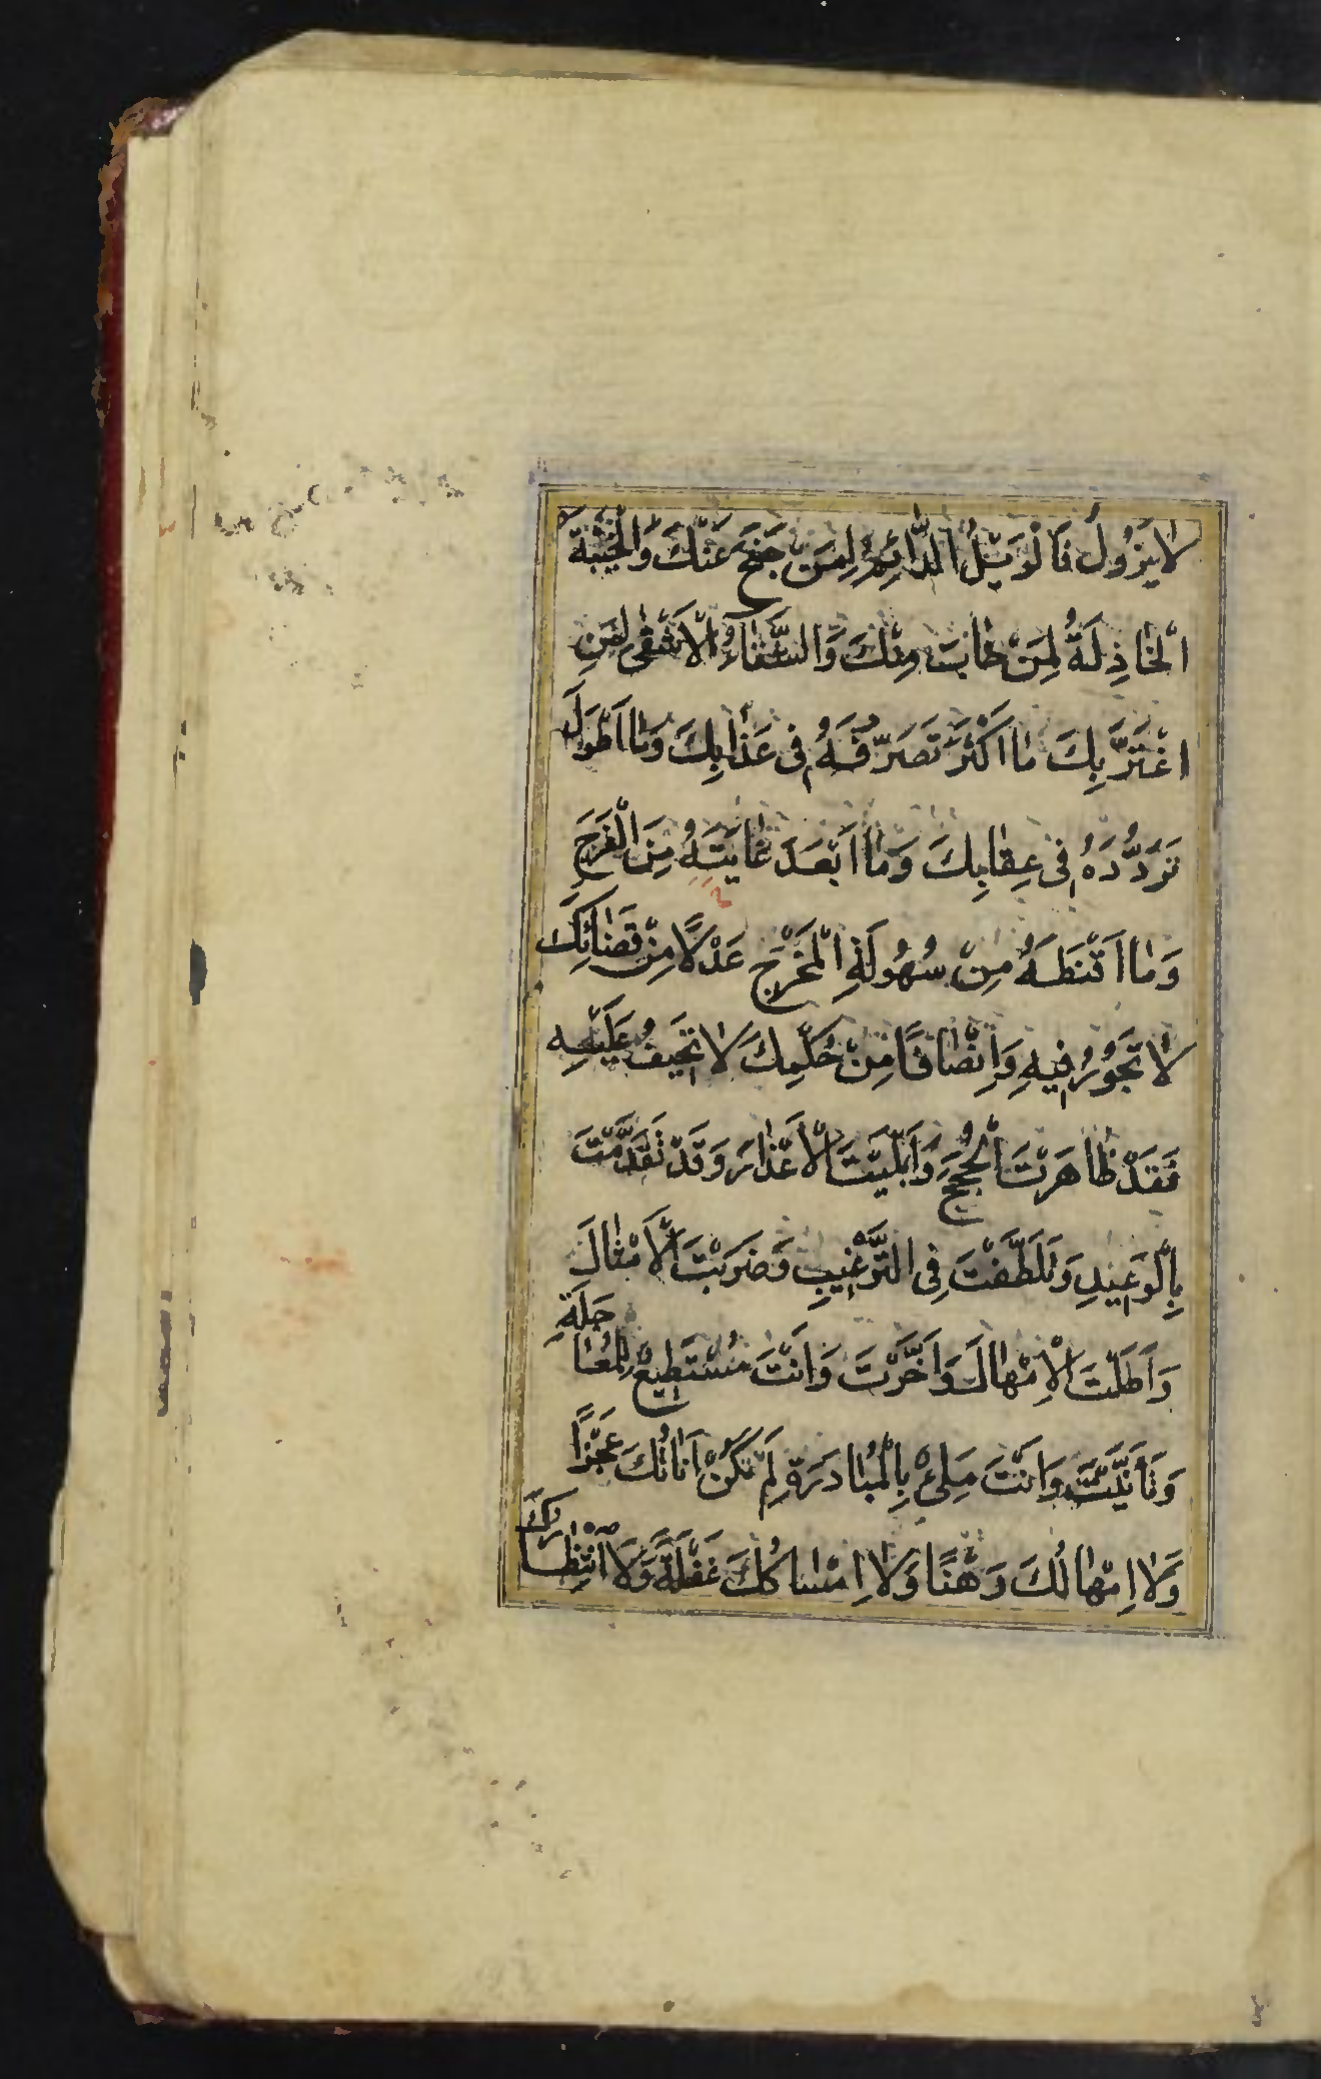 لَا يَزُولُ فَالْوَيْلُ الدَّائِمُ لِمَنْ جَنَحَ عَنْكَ وَالْخَيْبَةُ
الْخَاذِلَةُ لِمَنْ خَابَ مِنْكَ وَالشَّقَاءُ الْاَشْقٰى لِمَنِ
اغْتَرَّ بِكَ مَا اَكْثَرَ تَصَرُّفَهُ فِى عَذَابِكَ وَمَا اَطْوَلَ
تَرَدُّدَهُ فِى عِقَابِكَ وَمَا اَبْعَدَ غَايَتَهُ مِنَ الْفَرَجِ
وَمَا اَقْنَطَهُ مِنْ سُهُولَةِ الْمَخْرَجِ عَدْلًا مِنْ قَضَائِكَ
لَا تَجُورُ فِيهِ وَاِنْصَافًا مِنْ حُكْمِكَ لَا تَحِيفُ عَلَيْهِ
فَقَدْ ظَاهَرْتَ الْحُجَجَ وَاَبْلَيْتَ الْاَعْذَارَ وَقَدْ تَقَدَّمْتَ
بِالْوَعِيدِ وَتَلَطَّفْتَ فِى التَّرْغِيبِ وَضَرَبْتَ الْاَمْثَالَ
وَاَطَلْتَ الْاِمْهَالَ وَاَخَّرْتَ وَاَنْتَ مُسْتَطِيعٌ لِلْمُعَاجَلَةِ
وَتَأَنَّيْتَ وَاَنْتَ مَلِىءٌ بِالْمُبَادَرَةِ لَمْ تَكُنْ اَنَاتُكَ عَجْزًا
وَلَا اِمْهَالُكَ وَهْنًا وَلَا اِمْسَاكُكَ غَفْلَةً وَلَا انْتِظَارُكَ